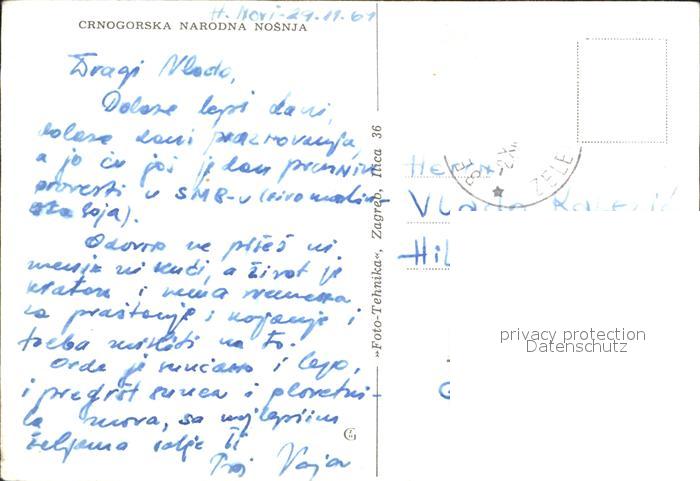 H. Novi-29.11.61
CRNOGORSKA NARODNA NOŠNJA
Dragi Vlado,
Dolaze lepi dani,
dolaze dani praznovanja,
a ja ću još jedan praznik
provesti u SMB-u (sivo maslin-
asta boja).
Odavno ne pišeš ni
meni ni kući, a život je
kratak i nema vremena
za praštanje i kajanje i
treba misliti na to.
Ovde je sunčano i lepo,
i pregršt sunca i plavetni-
la mora, sa najlepšim
željama šalje ti
Tvoj Voja
»Foto-Tehnika«, Zagreb, Ilica 36
Vlado
ZELE
privacy protection
Datenschutz